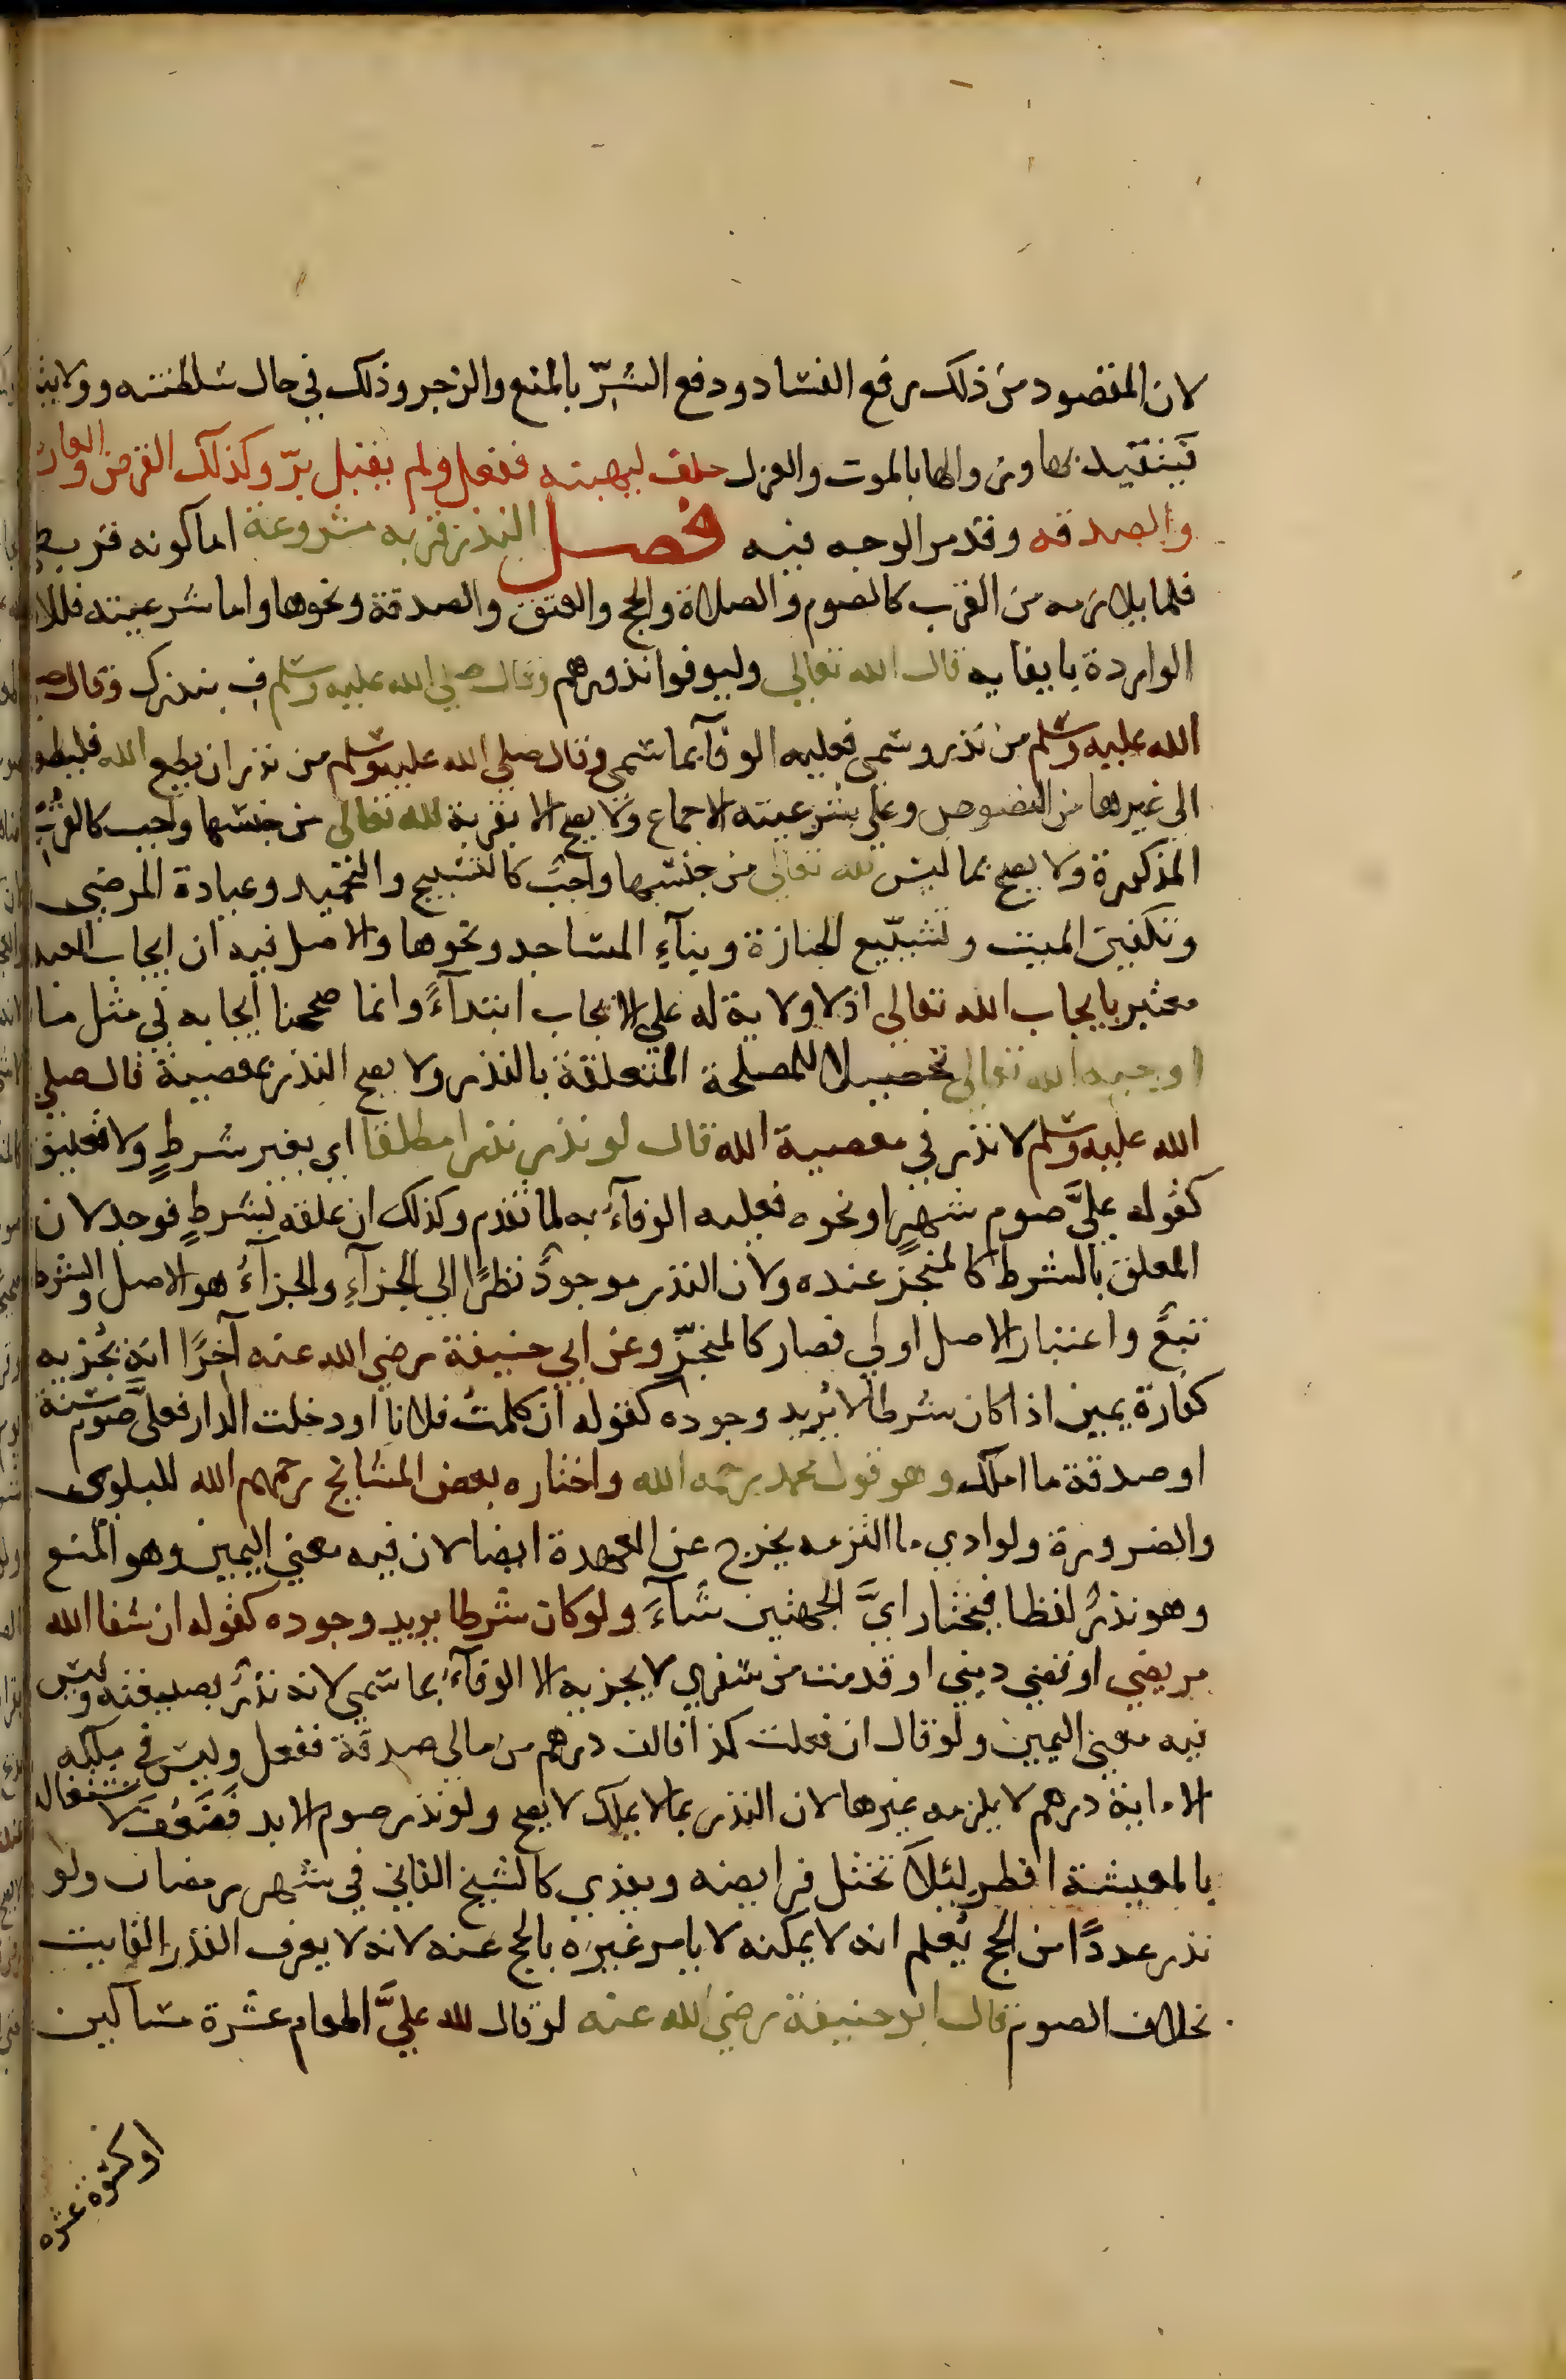 لان المقصود من ذلك رفع الفساد ودفع الشرّ بالمنع والزجر وذلك في حال سلطنته وولايته
فيتقيد بها وزوالها بالموت والعزل حلف ليهبنه ففعل ولم يقبل برّ وكذلك القرض والعارية
والصدقه وقد مر الوجه فيه فصل النذر قربه مشروعة اما كونه قربة
فلما يلازمه من القرب كالصوم والصلاة والحج والعتق والصدقة ونحوها واما شرعيته فللاوامر
الواردة بايفايه قال الله تعالي وليوفوا نذورهم وقال صلي الله عليه وسلم اف بنذرك وقال صلي
الله عليه وسلم من نذر وسمي فعليه الوفآ بما سمي وقال صلي الله عليه وسلم من نذر ان يطيع الله فليطعه
الي غيرها من النصوص وعلي شرعيته الاجماع ولا يصح الا بقربة لله تعالي من جنسها واجب كالقرب
المذكورة ولا يصح بما ليس لله تعالي من جنسها واجب كالتسبيح والتحميد وعيادة المرضي
وتكفين الميت وتشييع الجنازة وبنآء المساجد ونحوها والاصل فيه ان ايجاب العبد
معتبر بايجاب الله تعالي اذ لا ولاية له علي الايجاب ابتدآءً وانما صححنا ايجابه في مثل ما
اوجبه الله تعالي تحصيلا للمصلحة المتعلقة بالنذر ولا يصح النذر بمعصية قال صلي
الله عليه وسلم لا نذر في معصية الله قال لو نذر نذرا مطلقا اي بغير شرطٍ ولا تعليق
كقوله عليَّ صوم شهرٍ او نحوه فعليه الوفآءُ به لما تقدم وكذلك ان علقه بشرطٍ فوجد لان
المعلق بالشرط كالمنجز عنده ولان النذر موجودٌ نظرًا الي الجزآءِ والجزآءُ هو الاصل والشرط
تبعٌ واعتبار الاصل اولي فصار كالمنجّز وعن ابي حنيفة رضي الله عنه آخرًا انه يجزيه
كفارة يمين اذا كان شرطا لا يُريد وجوده كقوله ان كلمتُ فلانًا او دخلت الدار فعليَّ صوم سنة
او صدقة ما املك وهو قول محمد رحمه الله واختاره بعض المشايخ رحمهم الله للبلوي
والضرورة ولو ادي ما التزمه يخرج عن العهدة ايضا لان فيه معني اليمين وهو المنع
وهو نذرٌ لفظا فيختار ايَّ الجهتين شآءَ ولو كان شرطا يريد وجوده كقوله ان شفا الله
مريضي او قضي ديني او قدمت من سفري لا يجزيه الا الوفآءُ بما سمي لانه نذرٌ بصيغته وليس
فيه معني اليمين ولو قال ان فعلت كذا فالف درهم من مالي صدقة ففعل وليس في ملكه
الا ماية درهم لا يلزمه غيرها لان النذر بما لا يملك لا يصح ولو نذر صوم الابد فضَعُفَ لاشتغاله
بالمعيشة افطر ليئلا تختل فرايضه ويفدي كالشيخ الفاني في شهر رمضان ولو
نذر عددًا من الحج يُعلم انه لا يمكنه لا يامر غيره بالحج عنه لانه لا يعرف القدر الفايت
بخلاف الصوم قال ابو حنيفة رضي الله عنه لو قال لله عليَّ اطعام عشرة مساكين
او كسوة عشره